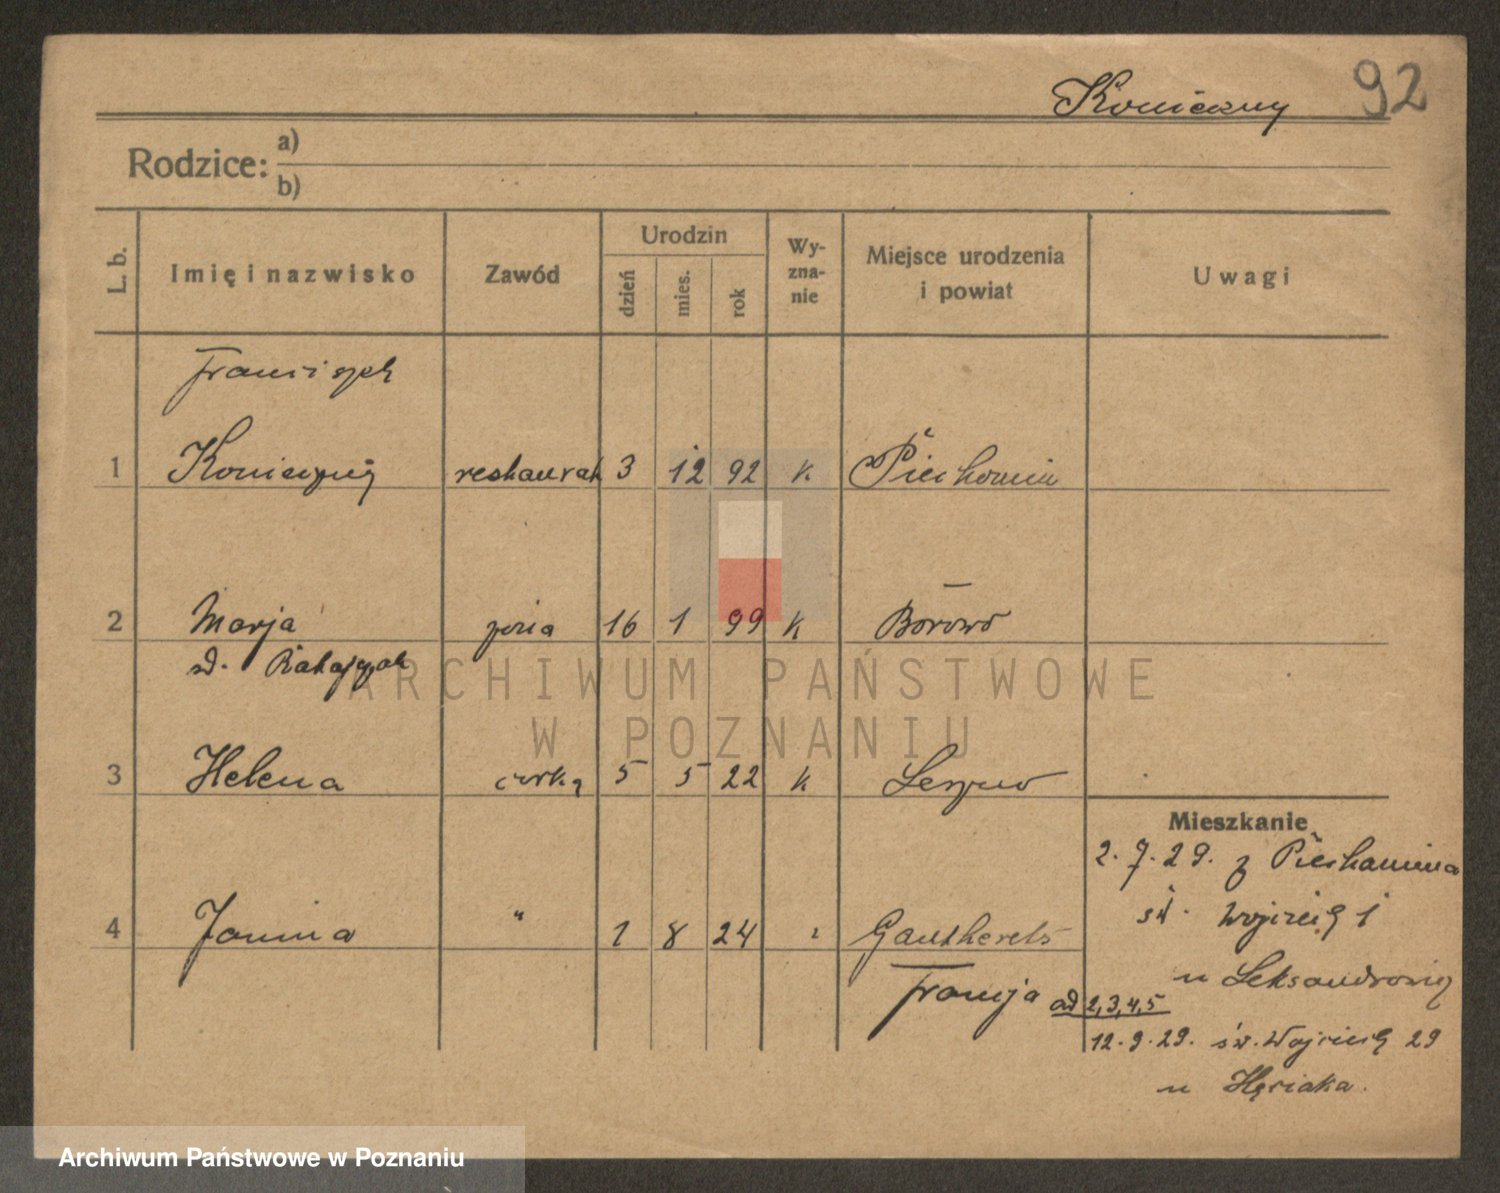 Konieczny 92
Rodzice: a)
b)
L. b. Imię i nazwisko Zawód Urodzin dzień mies. rok Wyznanie Miejsce urodzenia i powiat Uwagi
Franciszek
1 Konieczny restaurat 3 12 92 k Piechanin
2 Marja żona 16 1 99 k Borowo
z d. Ratajczak
3 Helena córka 5 5 22 k Leszno
Mieszkanie
2.7.29. z Piechanina
4 Janina " 1 8 24 " Gautherets
św. Wojciech 1
Francja
u Leksandrowicz
ad 2,3,4,5
12.9.29. św. Wojciech 29
u
ARCHIWUM PAŃSTWOWE
W POZNANIU
Archiwum Państwowe w Poznaniu